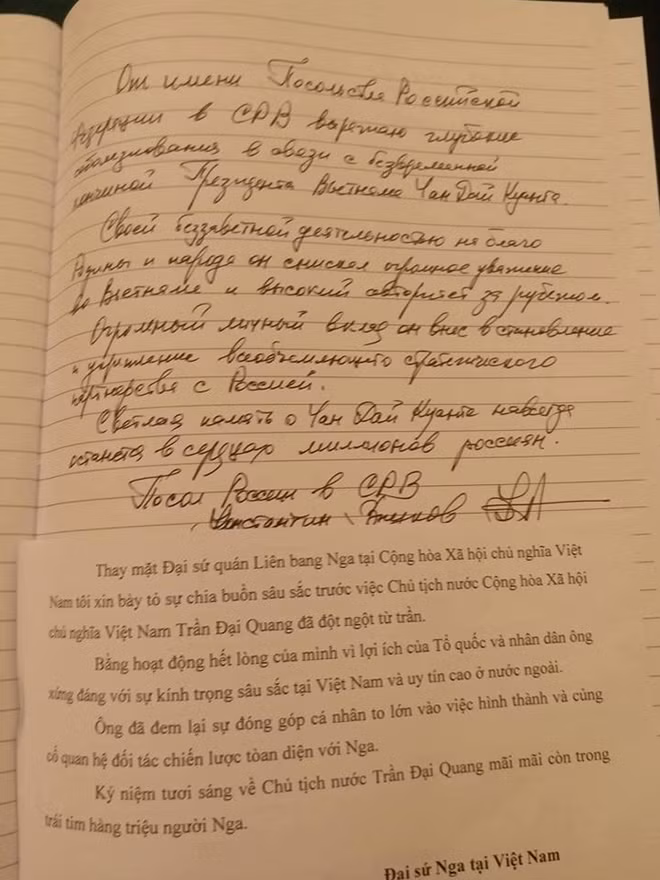 От имени Посольства Российской
Федерации в СРВ выражаю глубокие
соболезнования в связи с безвременной
кончиной Президента Вьетнама Чан Дай Куанга.
Своей беззаветной деятельностью на благо
Родины и народа он снискал огромное уважение
во Вьетнаме и высокий авторитет за рубежом.
Огромный личный вклад он внес в становление
и укрепление всеобъемлющего стратегического
партнерства с Россией.
Светлая память о Чан Дай Куанге навсегда
останется в сердцах миллионов россиян.
Посол России в СРВ
Константин Внуков
Thay mặt Đại sứ quán Liên bang Nga tại Cộng hòa Xã hội chủ nghĩa Việt
Nam tôi xin bày tỏ sự chia buồn sâu sắc trước việc Chủ tịch nước Cộng hòa Xã hội
chủ nghĩa Việt Nam Trần Đại Quang đã đột ngột từ trần.
Bằng hoạt động hết lòng của mình vì lợi ích của Tổ quốc và nhân dân ông
xứng đáng với sự kính trọng sâu sắc tại Việt Nam và uy tín cao ở nước ngoài.
Ông đã đem lại sự đóng góp cá nhân to lớn vào việc hình thành và củng
cố quan hệ đối tác chiến lược tòan diện với Nga.
Ký niệm tươi sáng về Chủ tịch nước Trần Đại Quang mãi mãi còn trong
trái tim hàng triệu người Nga.
Đại sứ Nga tại Việt Nam